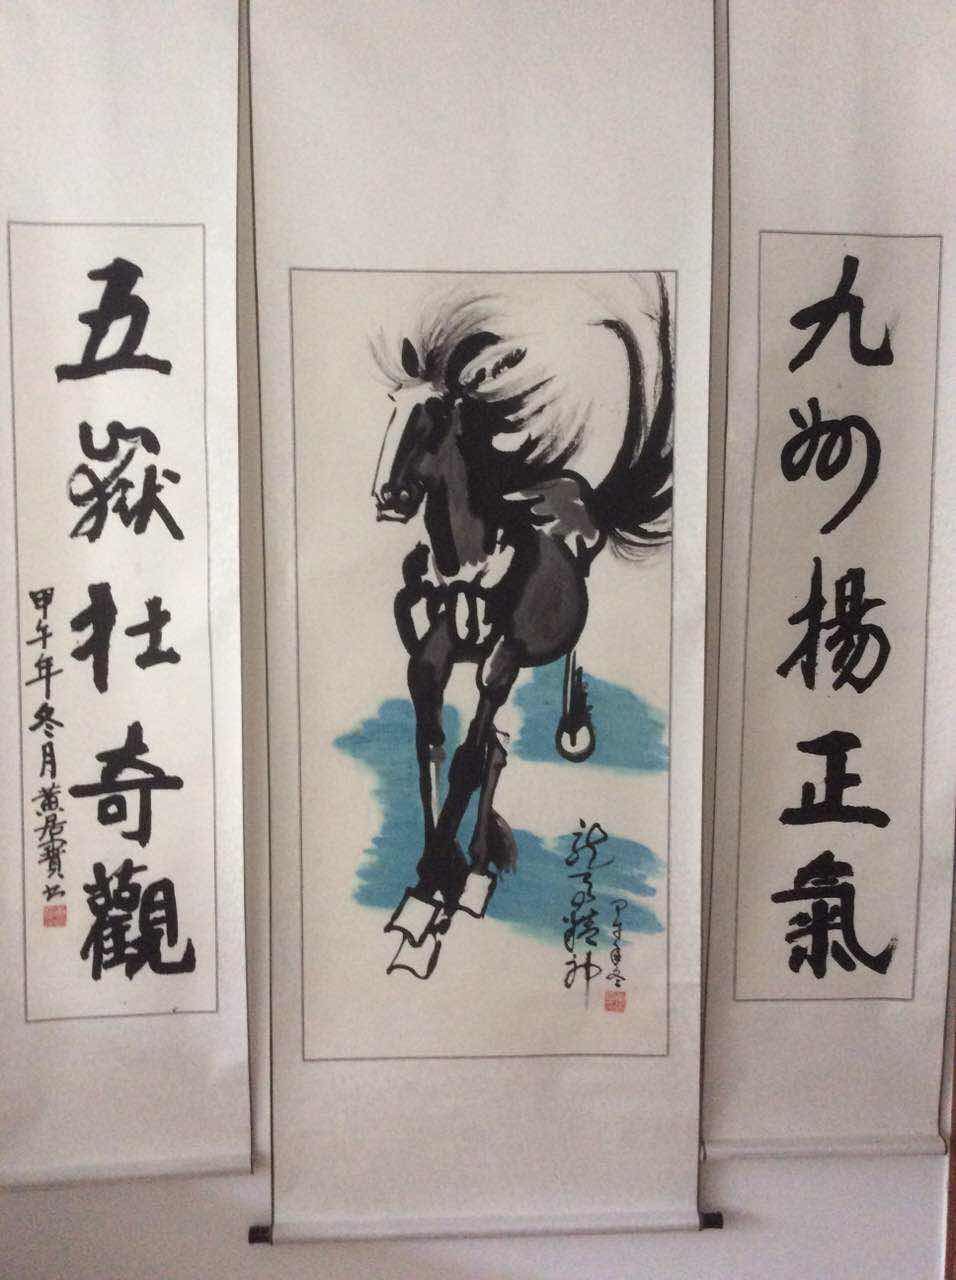 九州揚正氣
龍馬精神
甲午年冬
五嶽壯奇觀
甲午年冬月黄居寶书